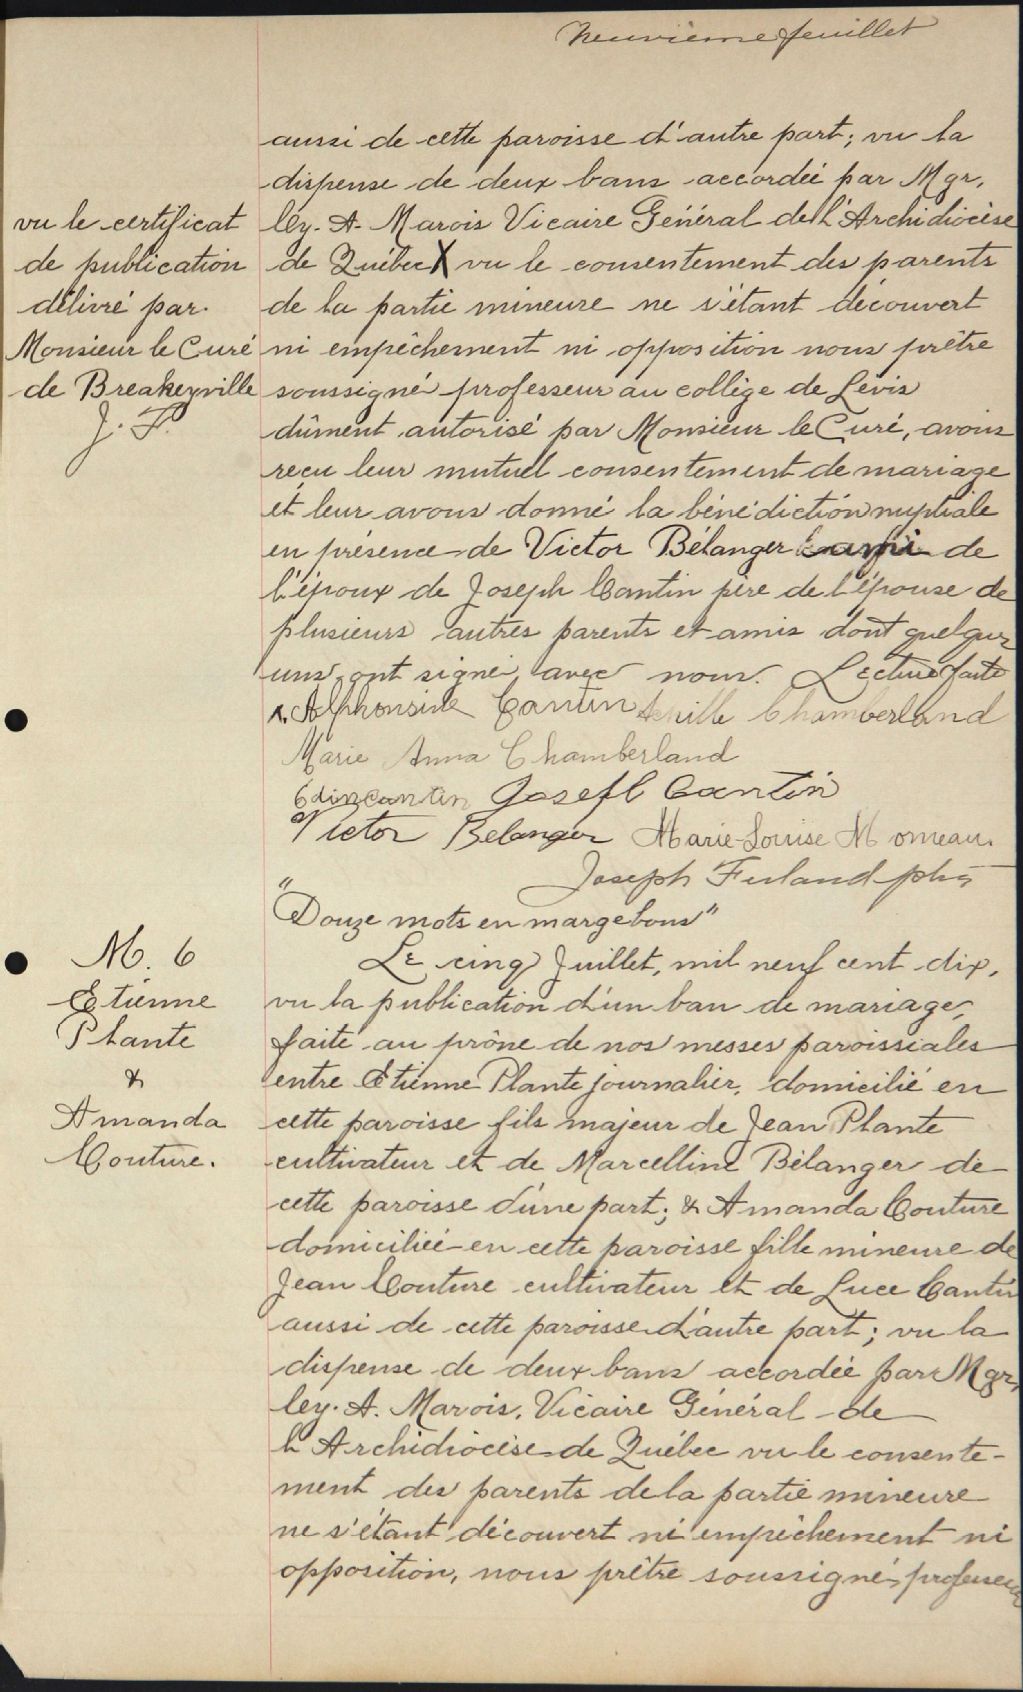 Neuvième feuillet
aussi de cette paroisse d'autre part; vu la
dispense de deux bans accordée par Mgr.
Cy. A. Marois Vicaire Général de l'Archidiocèse
de Québec X vu le consentement des parents
de la partie mineure ne s'étant découvert
ni empêchement ni opposition nous prêtre
soussigné professeur au collège de Lévis
dûment autorisé par Monsieur le Curé, avons
reçu leur mutuel consentement de mariage
et leur avons donné la bénédiction nuptiale
en présence de Victor Bélanger ami de
l'époux de Joseph Cantin père de l'épouse de
plusieurs autres parents et amis dont quelques
uns ont signé avec nous. Lecture faite
vu le certificat
de publication
délivré par
Monsieur le Curé
de Breakeyville
J. F.
x. Alphonsine Cantin Achille Chamberland
Marie Anna Chamberland
Cantin Josefh Cantin
Victor Belanger Marie-Louise Morneau.
Joseph Ferland ptre
"Douze mots en marge bons"
M. 6
Etienne
Plante
&
Amanda
Couture.
Le cinq Juillet, mil neuf cent dix,
vu la publication d'un ban de mariage,
faite au prône de nos messes paroissiales
entre Etienne Plante journalier, domicilié en
cette paroisse fils majeur de Jean Plante
cultivateur et de Marcelline Bélanger de
cette paroisse d'une part; & Amanda Couture
domiciliée en cette paroisse fille mineure de
Jean Couture cultivateur et de Luce Cantin
aussi de cette paroisse d'autre part; vu la
dispense de deux bans accordée par Mgr.
Cy. A. Marois, Vicaire Général de
l'Archidiocèse de Québec vu le consente-
ment des parents de la partie mineure
ne s'étant découvert ni empêchement ni
opposition, nous prêtre soussigné, professeur